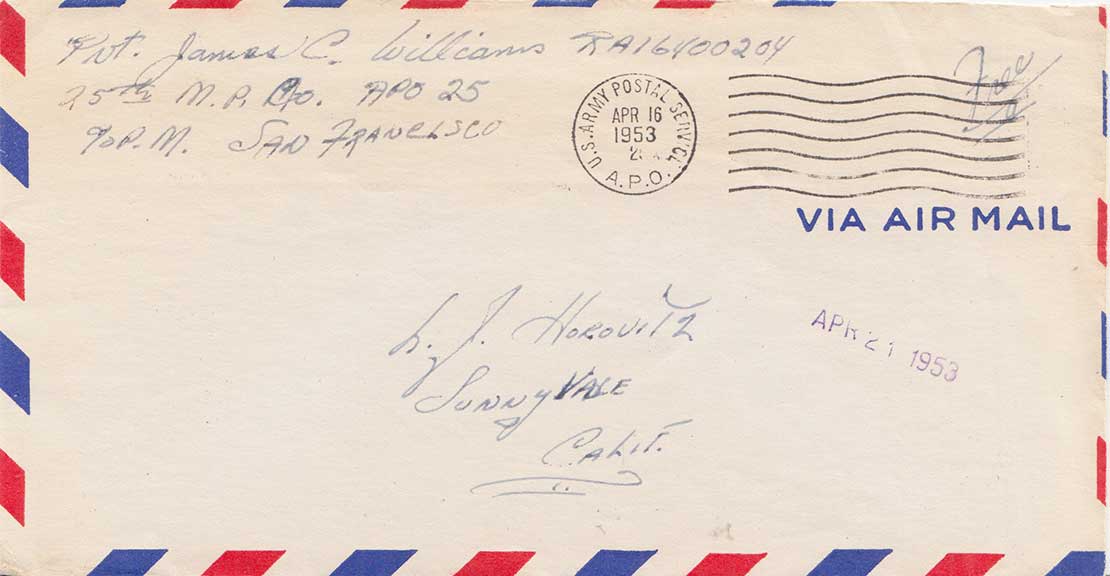 Pvt. James C. Williams RA16400204
25th M.P. Co. APO 25
℅ P.M. San Francisco
Free
U.S. ARMY POSTAL SERVICE
APR 16
1953
A.P.O.
VIA AIR MAIL
APR 21 1953
L. J. Horovitz
Sunnyvale
Calif.